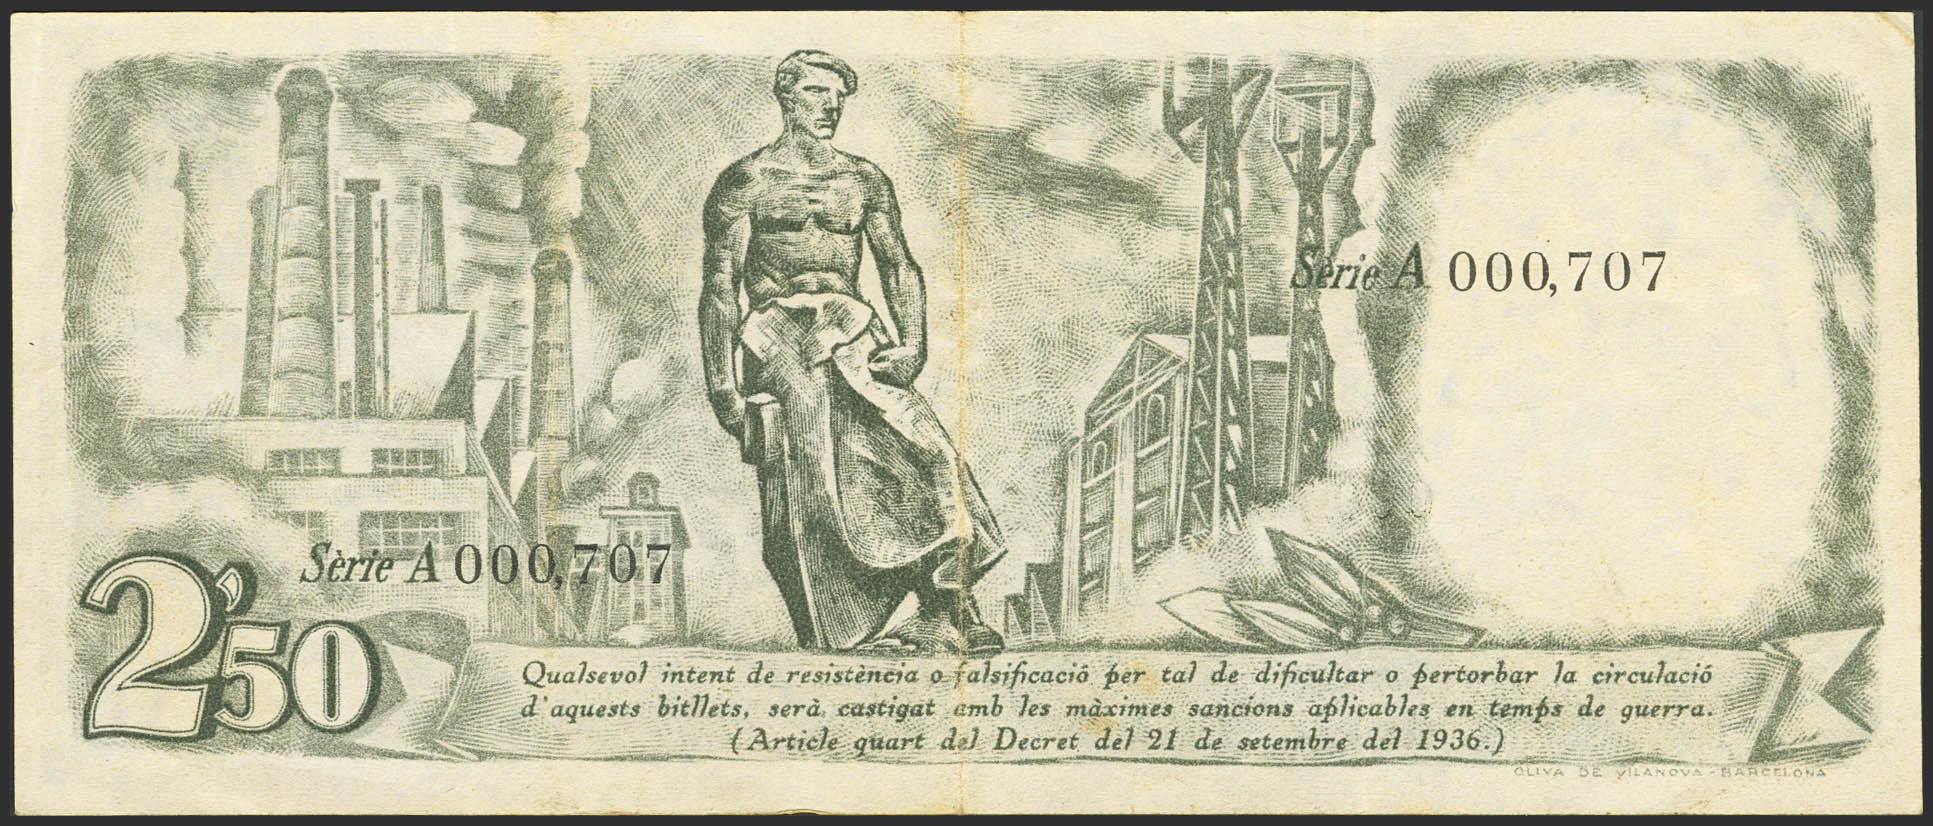 Sèrie A 000,707
Sèrie A 000,707
2'50
Qualsevol intent de resistència o falsificació per tal de dificultar o pertorbar la circulació
d'aquests bitllets, serà castigat amb les màximes sancions aplicables en temps de guerra.
(Article quart del Decret del 21 de setembre del 1936.)
OLIVA DE VILANOVA - BARCELONA